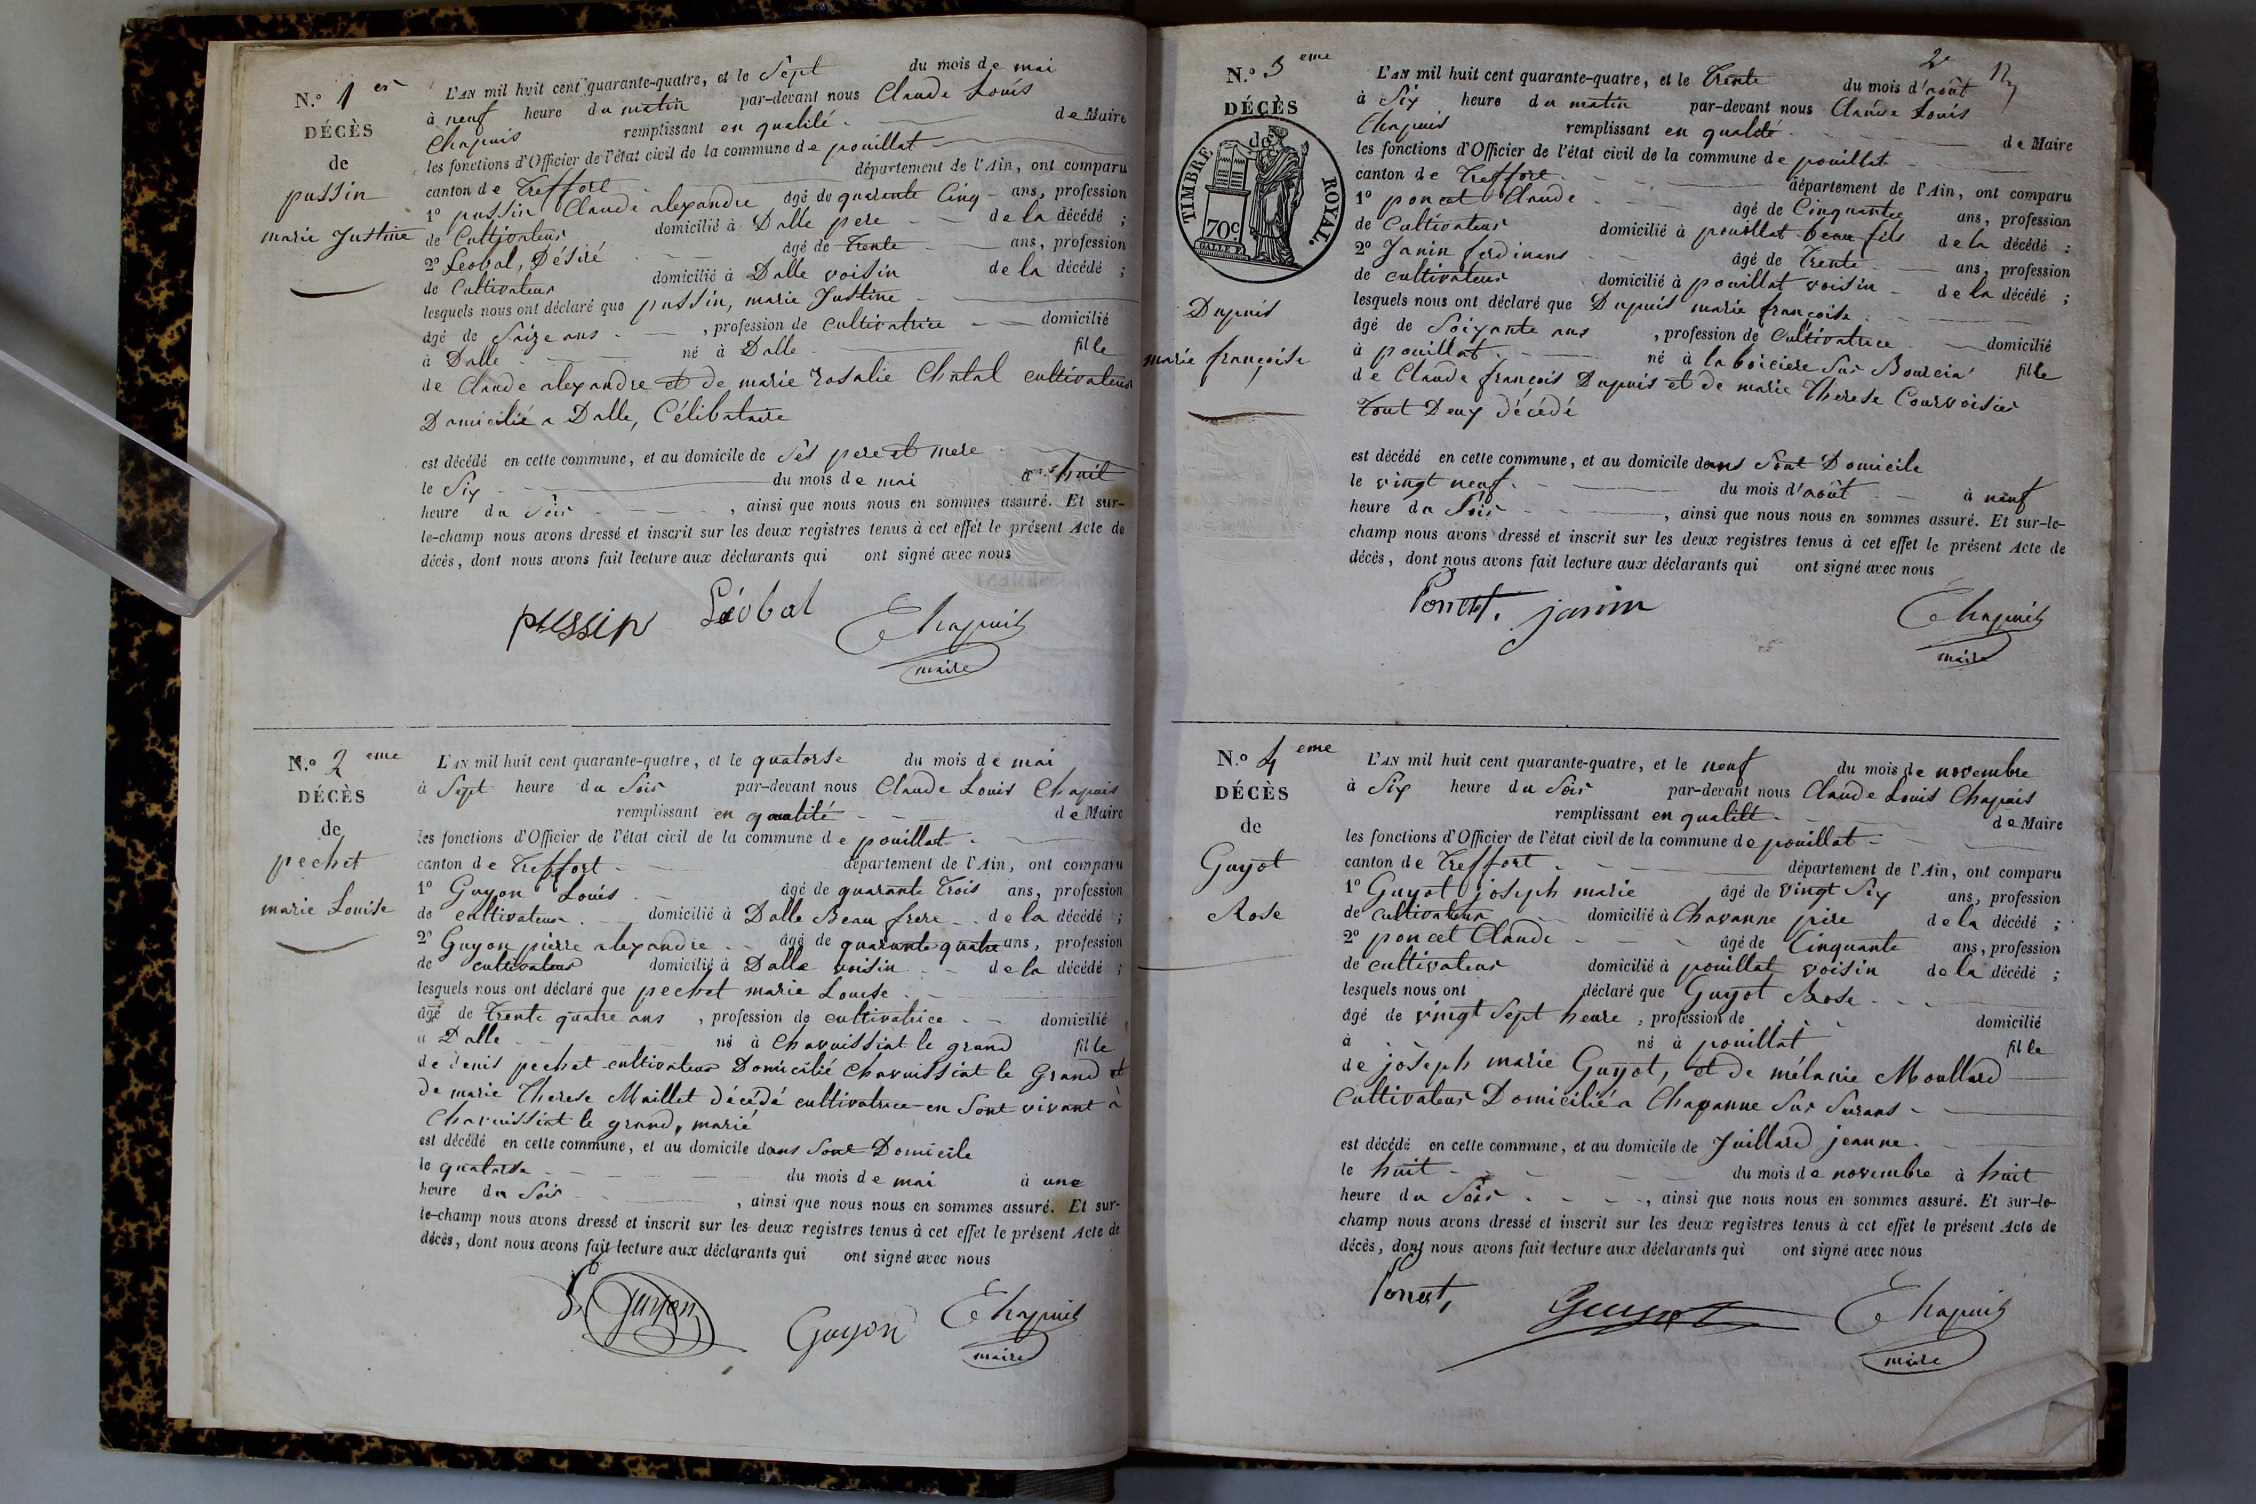 N.° 1er
DÉCÈS
de
pussin
marie Justine
L'AN mil huit cent quarante-quatre, et le Sept du mois de mai
à neuf heure du matin par-devant nous Claude Louis
Chapuis remplissant en qualité de Maire
les fonctions d'Officier de l'état civil de la commune de pouillat
canton de Treffort département de l'Ain, ont comparu
1° pussin Claude alexandre âgé de quarante Cinq ans, profession
de Cultivateur domicilié à Dalle pere de la décédé ;
2° Léobal, Désiré âgé de trente ans, profession
de Cultivateur domicilié à Dalle voisin de la décédé ;
lesquels nous ont déclaré que pussin, marie Justine
âgé de Saize ans , profession de cultivatrice domicilié
à Dalle né à Dalle fille
de Claude alexandre et de marie rosalie Chatal cultivateur
Domicilié a Dalle, Célibataire
est décédé en cette commune, et au domicile de Ses pere et mere
le Six du mois de mai à huit
heure du Soir , ainsi que nous nous en sommes assuré. Et sur-
le-champ nous avons dressé et inscrit sur les deux registres tenus à cet effet le présent Acte de
décès, dont nous avons fait lecture aux déclarants qui ont signé avec nous
pussin Léobal Chapuis
maire
N.° 2eme
DÉCÈS
de
pechet
marie Louise
L'AN mil huit cent quarante-quatre, et le quatorse du mois de mai
à Sept heure du Soir par-devant nous Claude Louis Chapuis
remplissant en qualité de Maire
les fonctions d'Officier de l'état civil de la commune de pouillat
canton de Treffort département de l'Ain, ont comparu
1° Guyon Louis âgé de quarante Trois ans, profession
de cultivateur domicilié à Dalle Beau frere de la décédé ;
2° Guyon pierre alexandre âgé de quarante quatre ans, profession
de cultivateur domicilié à Dalle voisin de la décédé ;
lesquels nous ont déclaré que pechet marie Louise
âgé de trente quatre ans , profession de cultivatrice domicilié
à Dalle né à Chavuissiat le grand fille
de denis pechet cultivateur Domicilié Chavuissiat le Grand et
de marie Therese Maillet décédé cultivatrice en Sont vivant à
Chavuissiat le grand, marié
est décédé en cette commune, et au domicile dans Sont Domicile
le quatorse du mois de mai à une
heure du Soir , ainsi que nous nous en sommes assuré. Et sur-
le-champ nous avons dressé et inscrit sur les deux registres tenus à cet effet le présent Acte de
décès, dont nous avons fait lecture aux déclarants qui ont signé avec nous
Guyon Guyon Chapuis
maire
2
N.° 3eme
DÉCÈS
de
TIMBRE ROYAL.
70c
Dupuis
marie françoise
L'AN mil huit cent quarante-quatre, et le Trente du mois d'août
à Six heure du matin par-devant nous Claude Louis
Chapuis remplissant en qualité de Maire
les fonctions d'Officier de l'état civil de la commune de pouillat
canton de Treffort département de l'Ain, ont comparu
1° poncet Claude âgé de Cinquante ans, profession
de Cultivateur domicilié à pouillat beau fils de la décédé ;
2° Janin ferdinans âgé de Trente ans, profession
de cultivateur domicilié à pouillat voisin de la décédé ;
lesquels nous ont déclaré que Dupuis marie françoise
âgé de Soixante ans , profession de Cultivatrice domicilié
à pouillat né à la boiciere Sur Bourcia fille
de Claude françois Dupuis et de marie Therese Courvoisier
Tout Deux décédé
est décédé en cette commune, et au domicile dans Sont Domicile
le vingt neuf du mois d'août à neuf
heure du Soir , ainsi que nous nous en sommes assuré. Et sur-le-
champ nous avons dressé et inscrit sur les deux registres tenus à cet effet le présent Acte de
décès, dont nous avons fait lecture aux déclarants qui ont signé avec nous
Poncet, janin Chapuis
maire
N.° 4eme
DÉCÈS
de
Guyot
Rose
L'AN mil huit cent quarante-quatre, et le neuf du mois de novembre
à Six heure du Soir par-devant nous Claude Louis Chapuis
remplissant en qualitt de Maire
les fonctions d'Officier de l'état civil de la commune de pouillat
canton de Treffort département de l'Ain, ont comparu
1° Guyot joseph marie âgé de vingt Six ans, profession
de cultivateur domicilié à Chavanne père de la décédé ;
2° poncet Claude âgé de Cinquante ans, profession
de cultivateur domicilié à pouillat voisin de la décédé ;
lesquels nous ont déclaré que Guyot Rose
âgé de vingt Sept heure , profession de domicilié
à né à pouillat fille
de joseph marie Guyot, et de mélanie Moullard
Cultivateur Domicilié a Chavanne Sur Surans
est décédé en cette commune, et au domicile de Juillard jeanne
le huit du mois de novembre à huit
heure du Soir , ainsi que nous nous en sommes assuré. Et sur-le-
champ nous avons dressé et inscrit sur les deux registres tenus à cet effet le présent Acte de
décès, dont nous avons fait lecture aux déclarants qui ont signé avec nous
Poncet, Guyot Chapuis
maire